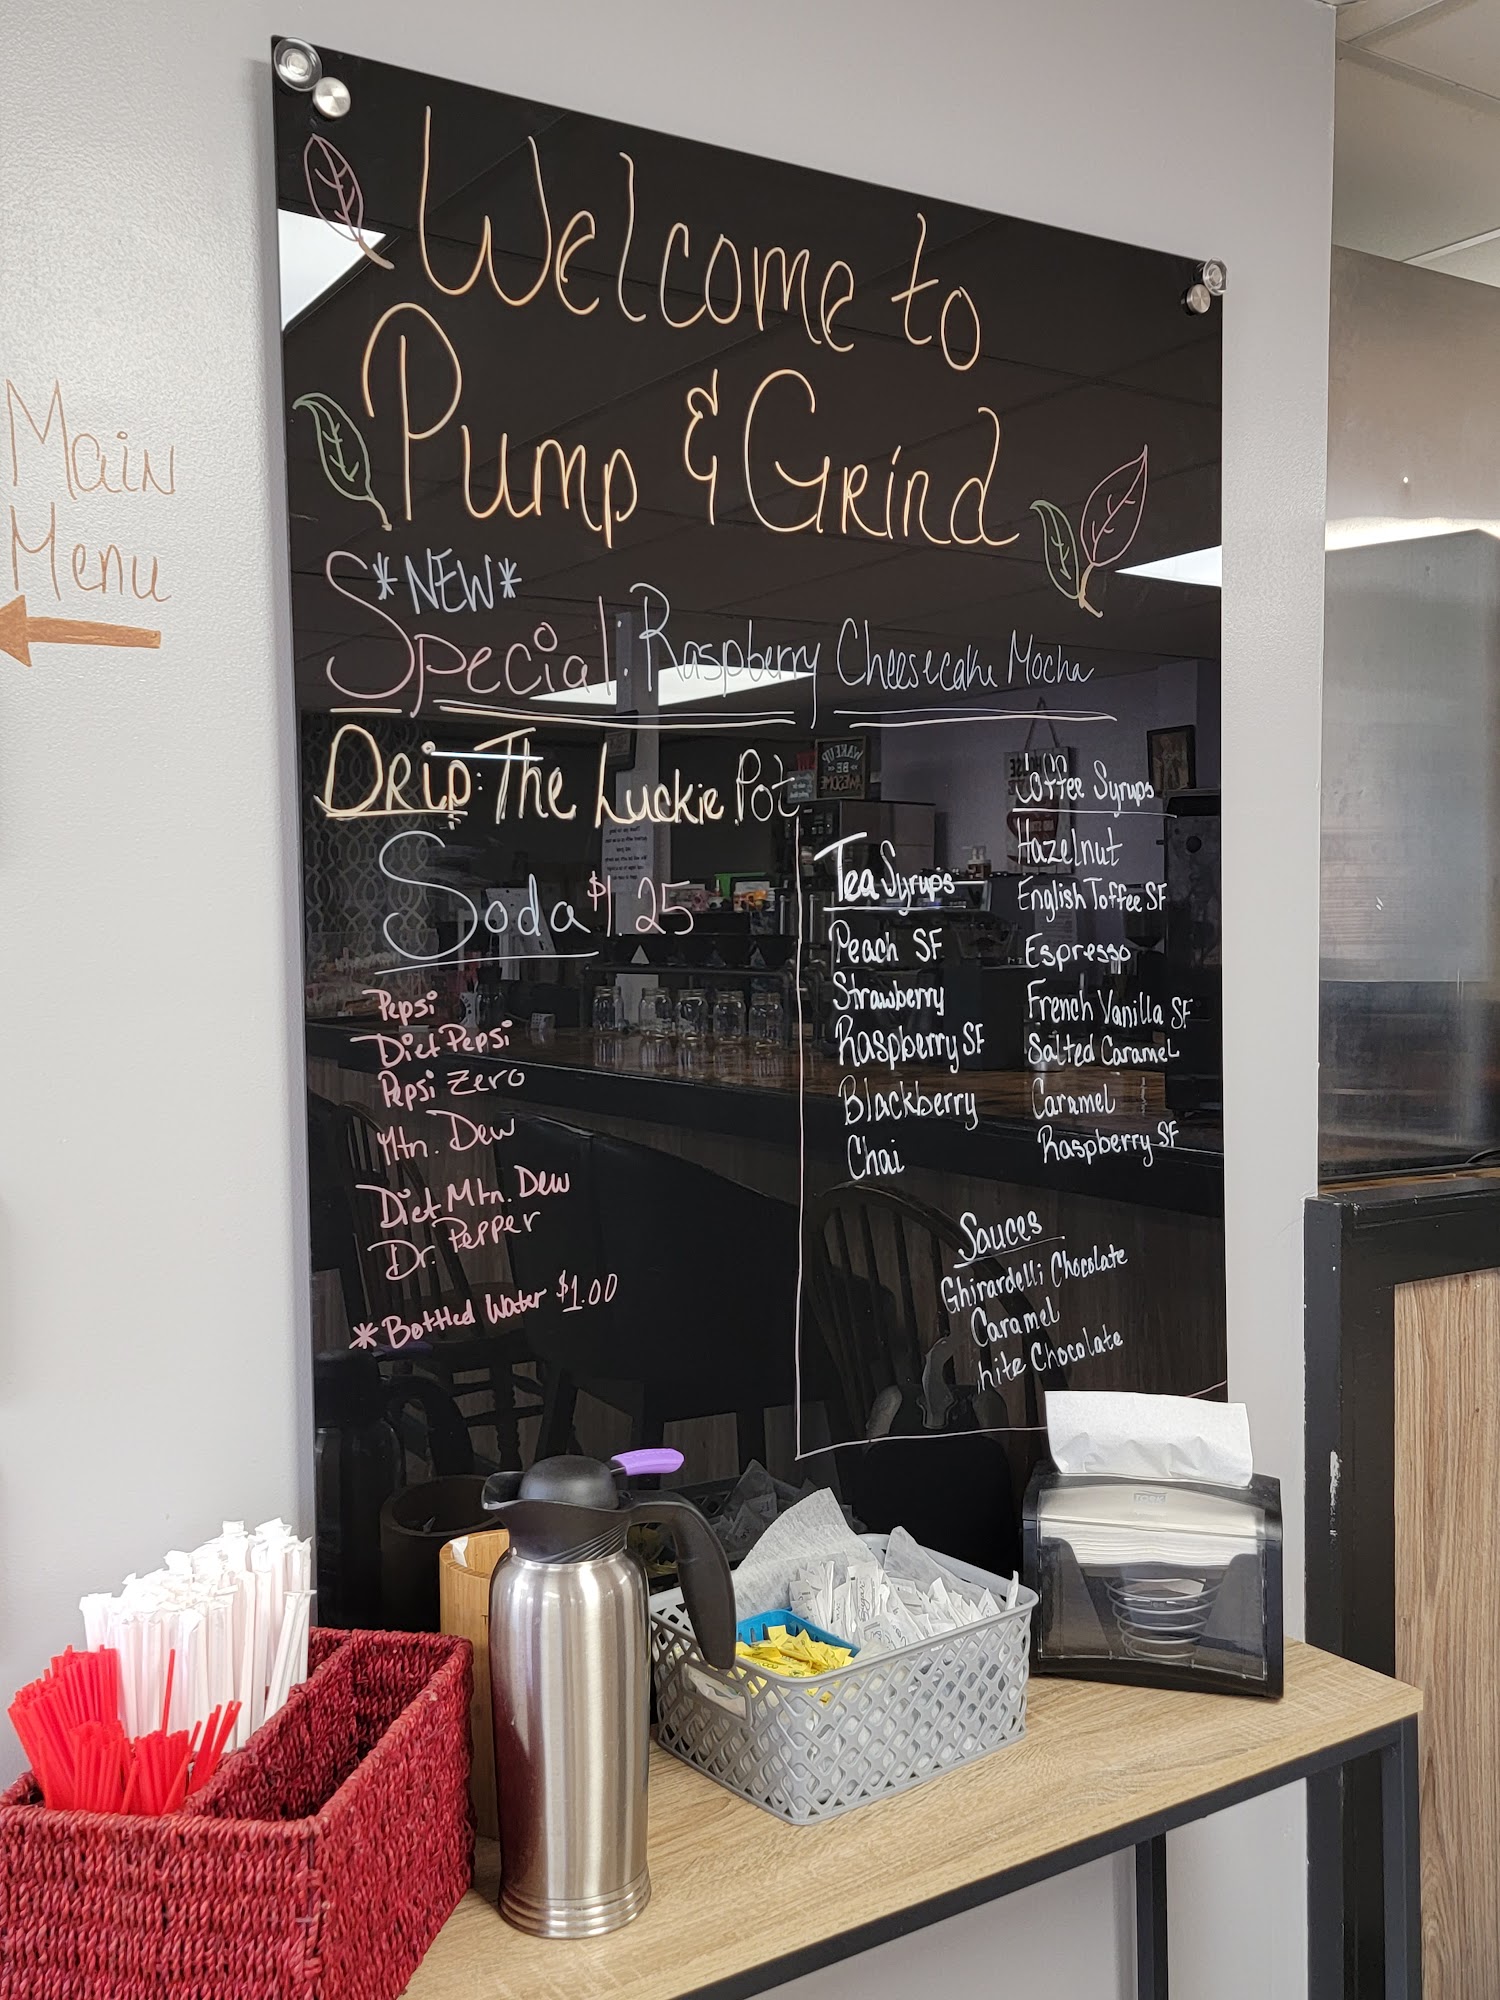 Main
Menu
Welcome to
Pump & Grind
*NEW*
Special: Raspberry Cheesecake Mocha
Drip: The Luckie Pot
Soda $1.25
Pepsi
Diet Pepsi
Pepsi Zero
Mtn. Dew
Diet Mtn. Dew
Dr. Pepper
*Bottled Water $1.00
Tea Syrups
Peach SF
Strawberry
Raspberry SF
Blackberry
Chai
Coffee Syrups
Hazelnut
English Toffee SF
Espresso
French Vanilla SF
Salted Caramel
Caramel
Raspberry SF
Sauces
Ghirardelli Chocolate
Caramel
hite Chocolate
WAKE UP
BE
AWESOME